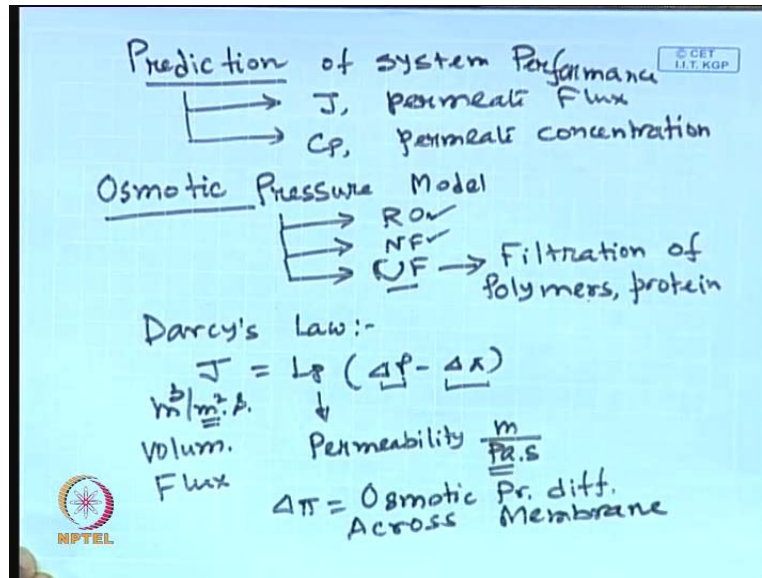 Prediction of system Performance
© CET
I.I.T. KGP
J, permeate Flux
Cp, permeate concentration
Osmotic Pressure Model
RO✓
NF✓
UF → Filtration of
Polymers, protein
Darcy's Law:-
J = Lp (ΔP - Δπ)
m³/m².s.
Volum.
Flux
Permeability m/Pa.s
Δπ = Osmotic Pr. diff.
Across Membrane
NPTEL